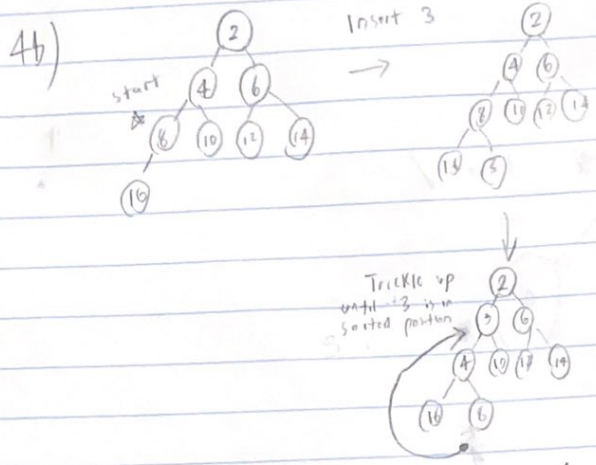 4b)
start
2
4 6
8 10 12 14
16
Insert 3
2
4 6
8 10 12 14
16 3
Trickle up
until 3 is in
sorted position
2
3 6
4 10 12 14
16 8